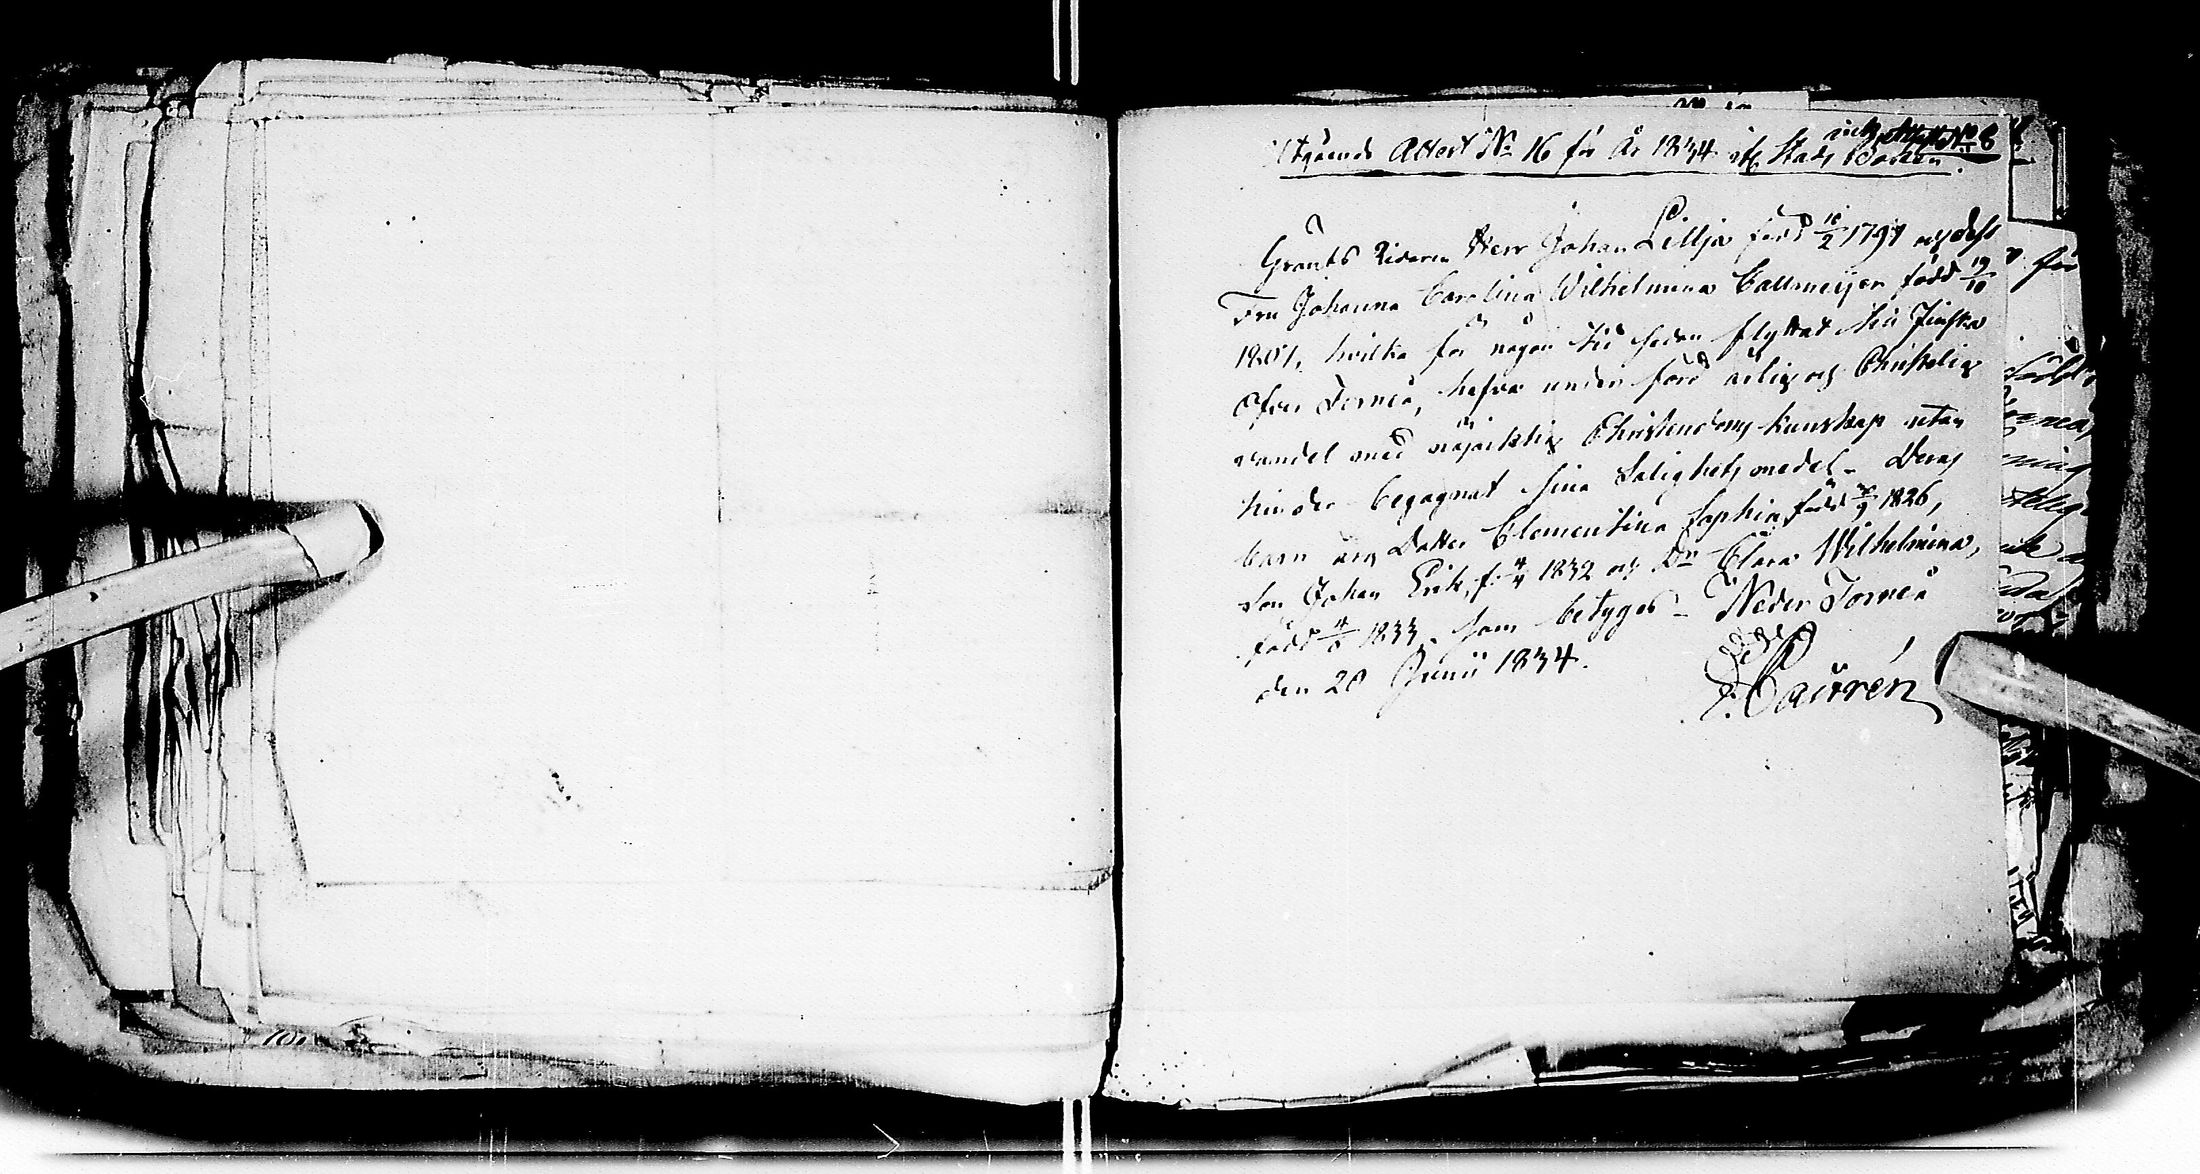 ink. Att. No 8
Utgående Attest No 16 för År 1834 uti Stads Boken.
Gränts Ridaren Herr Johan Lillja född 16/2 1797 och dess
Fru Johanna Carolina Wilhelmina Callmeijer född 19/10
1801, hvilka för någon tid sedan flyttat till Finska
Öfver Torneå, hafva under förd ärlig och Christelig
vandel med nöjaktig Christendoms kunskap utan
hinder begagnat sina Salighets medel. Deras
barn äro Dotter Clementina Sophia, född /9 1826,
Son Johan Erik, f. 4/4 1832 och Dr Clara Wilhelmina,
född 4/8 1833. Som betygas – Neder Torneå
den 20 Junii 1834.